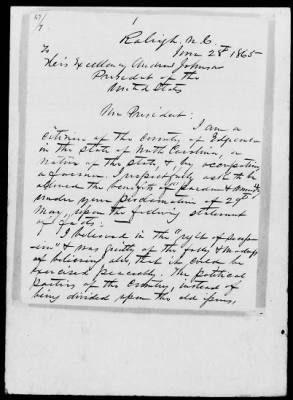 1
Raleigh, N.C.
June 28th 1865
To
His Excellency Andrew Johnson
President of the
United States
Mr President:
I am a
citizen of the County of Edgecombe
in the State of North Carolina, a
native of the State, & by occupation
a farmer. I respectfully ask to be
allowed the benefits of "Pardon & Amnesty"
under your proclamation of 29th
May, upon the following statement
of facts:
I believed in the "right of
& was guilty of the folly, & madness
of believing also, that it could be
exercised peaceably. The political
parties of the Country, instead of
being divided upon the old issues,